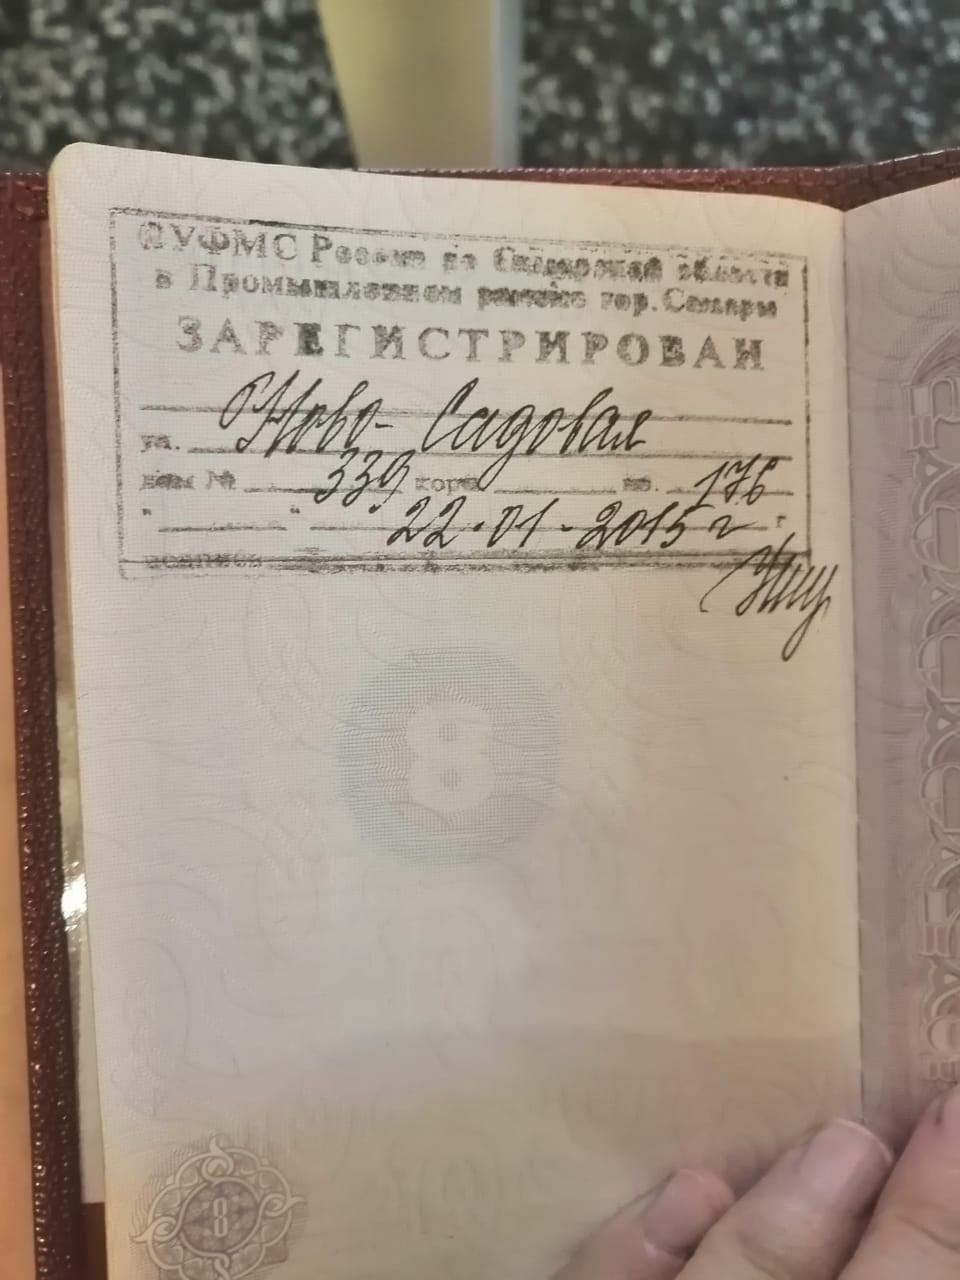 ОУФМС России по Самарской области
в Промышленном районе гор. Самары
ЗАРЕГИСТРИРОВАН
ул. Ново-Садовая
дом № 339 корп. кв. 176
" " 22.01-2015 г г
подпись
8
8